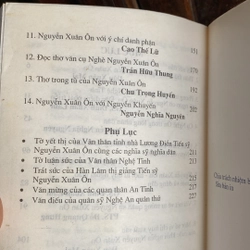 11. Nguyễn Xuân Ôn với ý chí danh phận
Cao Thế Lữ 151
12. Đọc thơ văn cụ Nghè Nguyễn Xuân Ôn
Trần Hữu Thung 179
13. Thơ trong tù của Nguyễn Xuân Ôn
Chu Trọng Huyến 192
14. Nguyễn Xuân Ôn với Nguyễn Khuyến
Nguyễn Nghĩa Nguyên 202
Phụ Lục
• Tờ yết thị của Văn thân tỉnh nhà Lương Điền Tiến sỹ
Nguyễn Xuân Ôn cùng các nghĩa sỹ nghĩa dân
• Tờ luân sức của Văn thân Nghệ Tĩnh
• Trát sức của Hàn Lâm thị giảng Tiến sỹ
Nguyễn Xuân Ôn
• Văn mừng của các quan An Tĩnh 217
• Văn điếu của quân sỹ Nghệ An quân thứ 221
Chịu trách nhiệm